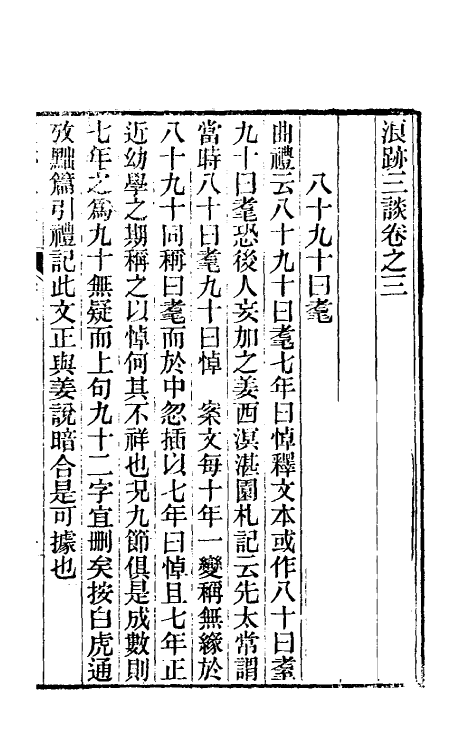 浪跡三談卷之三
八十九十曰耄
曲禮云八十九十曰耄七年曰悼釋文本或作八十曰耋
九十曰耄恐後人妄加之姜西溟湛園札記云先太常謂
當時八十曰耄九十曰悼　案文每十年一變稱無緣於
八十九十同稱曰耄而於中忽插以七年曰悼且七年正
近幼學之期稱之以悼何其不祥也況九節俱是成數則
七年之爲九十無疑而上句九十二字宜刪矣按白虎通
攷黜篇引禮記此文正與姜說暗合是可據也